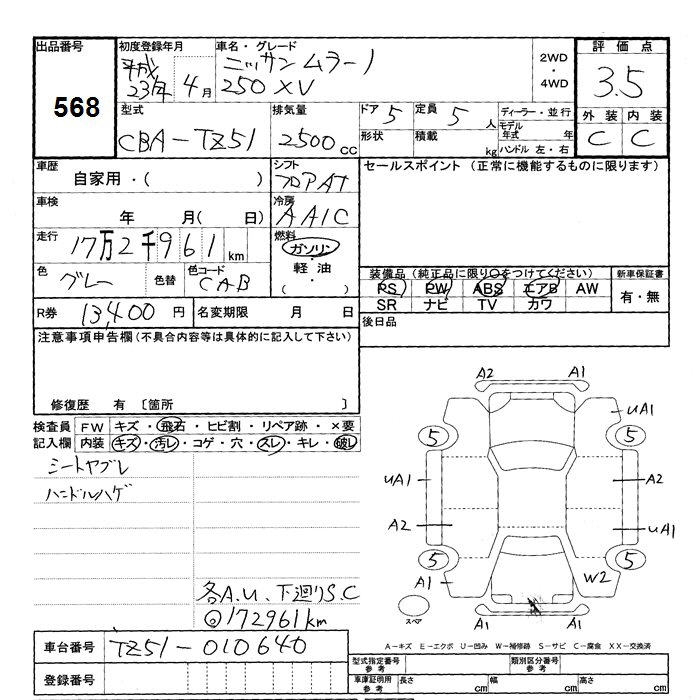 出品番号 初度登録年月 車名・グレード 2WD・4WD 評価点
568 平成23年 4月 ニッサン ムラーノ 250XV 3.5
型式 排気量 ドア 5 定員 5人 ディーラー・並行 外装 内装
CBA-TZ51 2500cc 形状 積載 kg モデル年式 年 ハンドル 左・右 C C
車歴 シフト セールスポイント (正常に機能するものに限ります)
自家用・( ) フロアAT
車検 冷房
年 月( 日) AAIC
走行 17万2千961km 燃料 ガソリン・軽油( )
色 グレー 色替 色コード CAB 装備品(純正品に限り○をつけてください) 新車保証書
PS PW ABS エアB AW 有・無
SR ナビ TV カワ
R券 13,400円 名変期限 月 日 後日品
注意事項申告欄(不具合内容等は具体的に記入して下さい)
修復歴 有 [箇所 ]
検査員 FW キズ・飛石・ヒビ割・リペア跡・×要
記入欄 内装 キズ・汚レ・コゲ・穴・スレ・キレ・破レ
シートヤブレ
ハンドルハゲ
A2 A1
UA1
5 5
UA1 A2
A2 UA1
5 5
A1 W2
スペア
A1 A1
各A.U、下廻りS.C
@172961km
A-キズ E-エクボ U-凹み W-補修跡 S-サビ C-腐食 XX-交換済
車台番号 TZ51-010640
登録番号
型式指定番号 参考 類別区分番号 参考
車庫証明用 参考 長さ cm 幅 cm 高さ cm